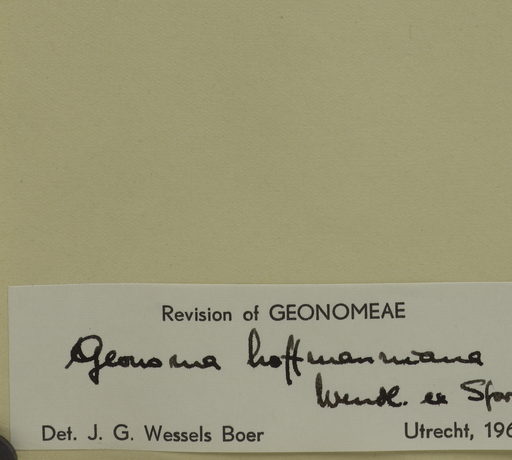 Revision of GEONOMEAE
Geonoma hoffmanniana
Wendl. ex Spr
Det. J. G. Wessels Boer
Utrecht, 196